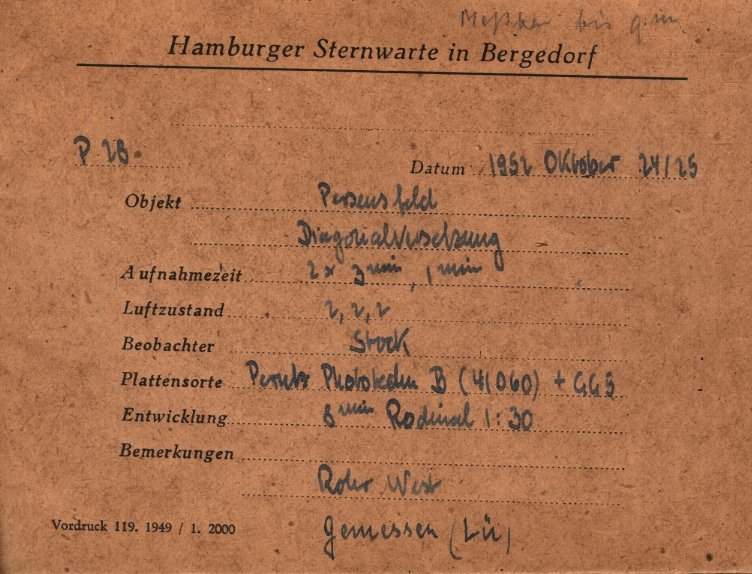 Meßbar bis 9.m
Hamburger Sternwarte in Bergedorf
P 2B. Datum 1952 Oktober 24/25
Objekt Perseusfeld
Diagonalversetzung
Aufnahmezeit 2 x 3 min, 1 min
Luftzustand 2, 2, 2
Beobachter Stock
Plattensorte Perutz B (41060) + GG5
Entwicklung 8 min Rodinal 1:30
Bemerkungen
Rohr West
Vordruck 119. 1949 / 1. 2000 Gemessen (Lü)